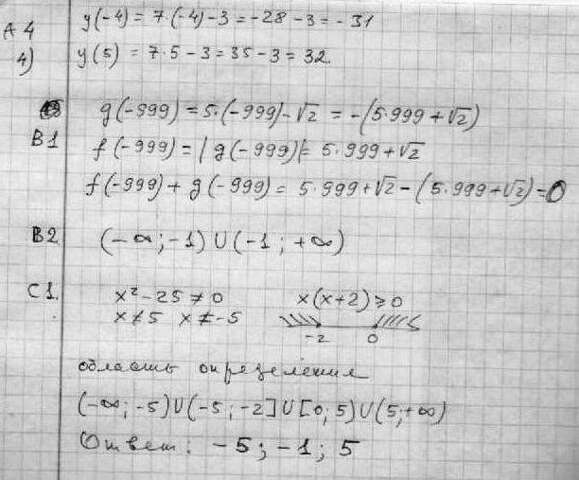 A4 y(-4) = 7·(-4)-3 = -28-3 = -31
4) y(5) = 7·5-3 = 35-3 = 32.
g(-999) = 5·(-999)-√2 = -(5·999+√2)
B1 f(-999) = |g(-999)| = 5·999+√2
f(-999) + g(-999) = 5·999+√2-(5·999+√2) = 0
B2 (-∞; -1) U (-1; +∞)
C1. x²-25 ≠ 0 x(x+2) ≥ 0
x ≠ 5 x ≠ -5
-2 0
область определения
(-∞; -5) U (-5; -2] U [0; 5) U (5; +∞)
Ответ: -5; -1; 5